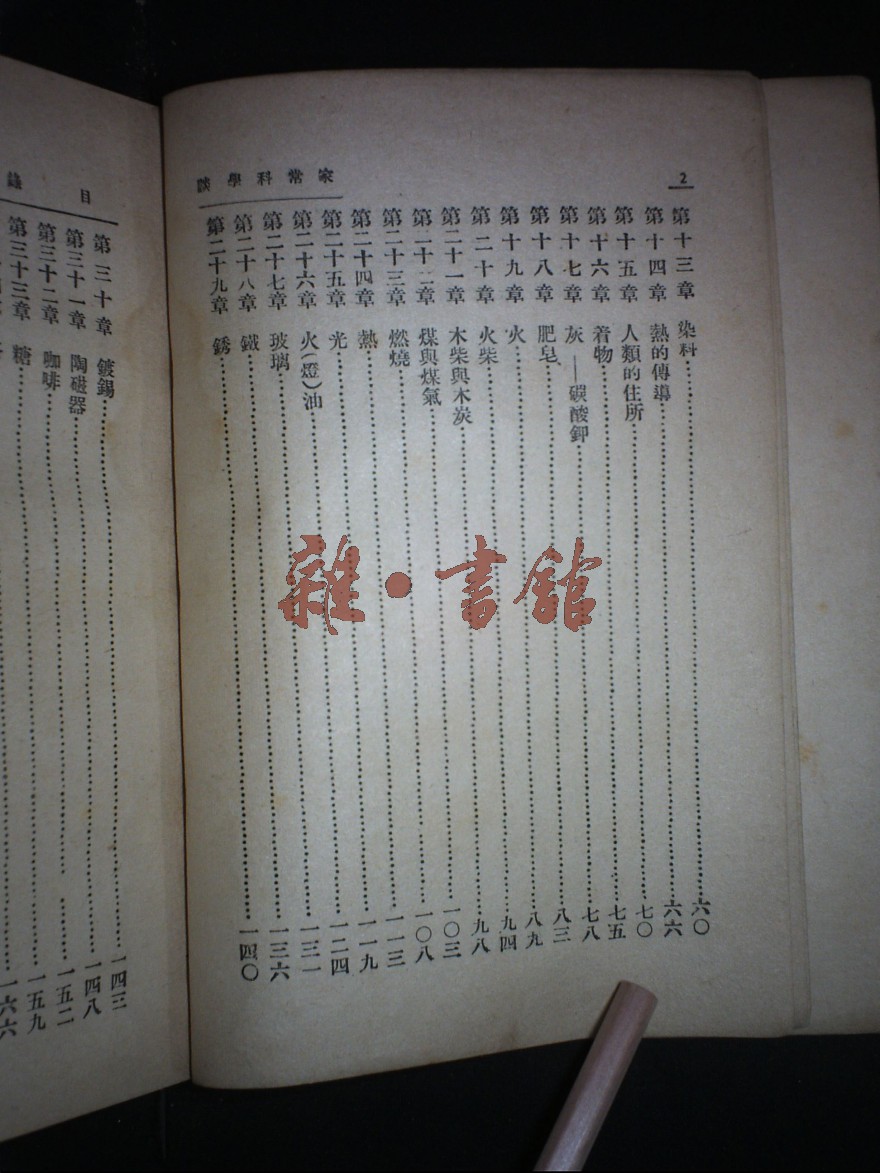 2
家常科學談
第十三章 染料……六〇
第十四章 熱的傳導……六六
第十五章 人類的住所……七〇
第十六章 着物……七五
第十七章 灰——碳酸鉀……七八
第十八章 肥皂……八三
第十九章 火……八九
第二十章 火柴……九四
第二十一章 木柴與木炭……九八
第二十二章 煤與煤氣……一〇三
第二十三章 燃燒……一〇八
第二十四章 熱……一一三
第二十五章 光……一一九
第二十六章 火(燈)油……一二四
第二十七章 玻璃……一三一
第二十八章 鐵……一三六
第二十九章 銹……一四〇
目錄
第三十章 鍍錫……一四三
第三十一章 陶磁器……一四八
第三十二章 咖啡……一五二
第三十三章 糖……一五九
一六六
雜•書館